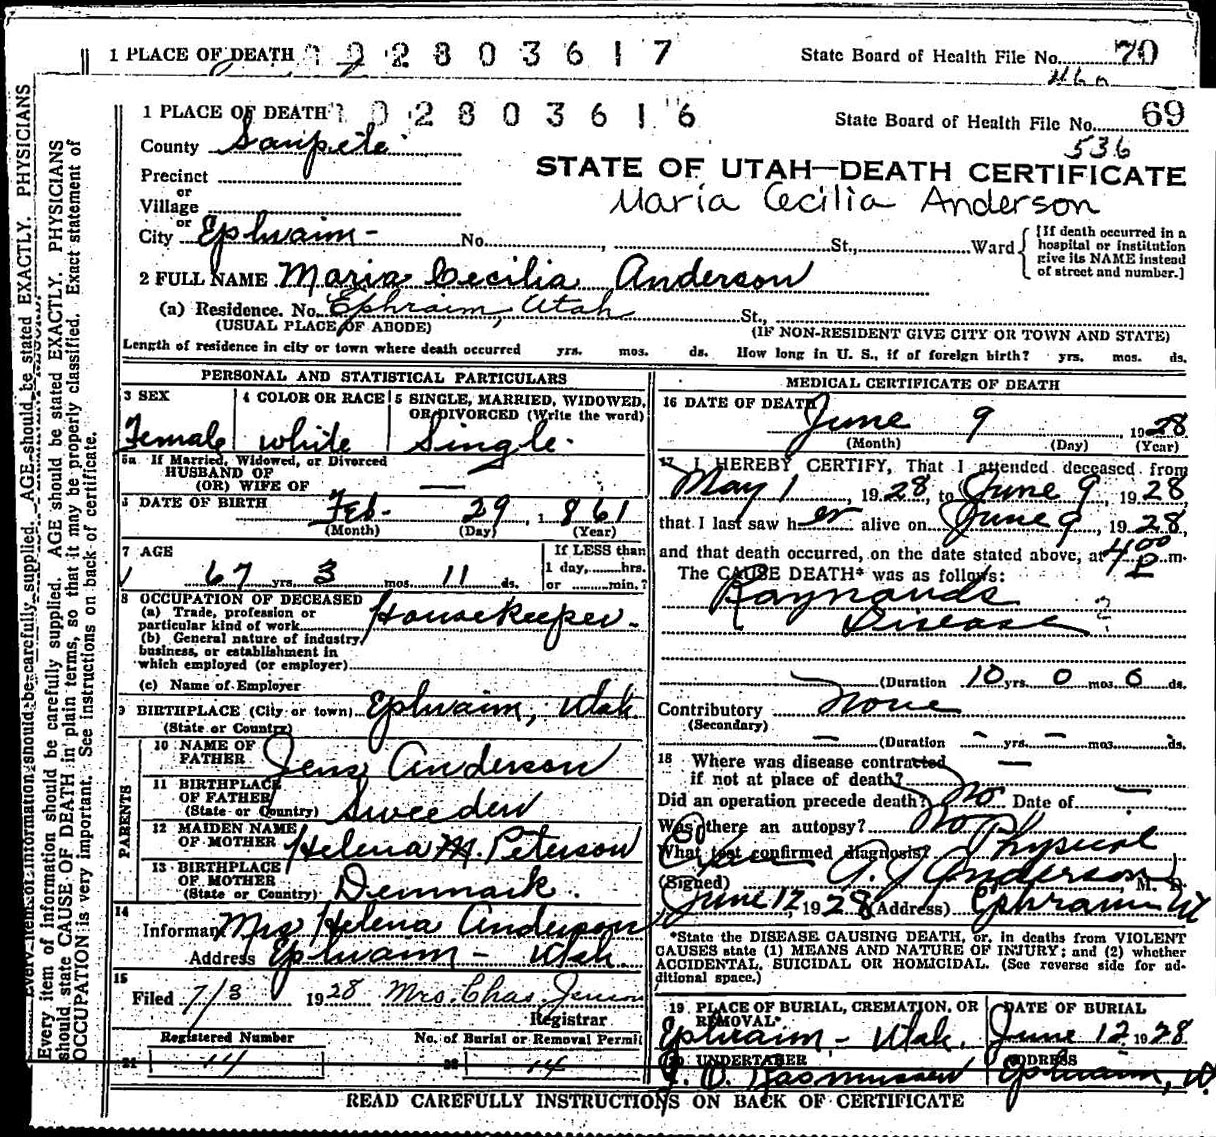 1 PLACE OF DEATH 2 8 0 3 6 1 7 State Board of Health File No. 70
1 PLACE OF DEATH 0 2 8 0 3 6 1 6 State Board of Health File No. 69
536
County Sanpete
STATE OF UTAH—DEATH CERTIFICATE
Precinct
or
Maria Cecilia Anderson
Village
or
City Ephraim - No. , St., Ward
[If death occurred in a
hospital or institution
give its NAME instead
of street and number.]
2 FULL NAME Maria Cecilia Anderson
(a) Residence. No. Ephraim, Utah St.,
(USUAL PLACE OF ABODE) (IF NON-RESIDENT GIVE CITY OR TOWN AND STATE)
Length of residence in city or town where death occurred yrs. mos. ds. How long in U. S., if of foreign birth? yrs. mos. ds.
PERSONAL AND STATISTICAL PARTICULARS
3 SEX 4 COLOR OR RACE 5 SINGLE, MARRIED, WIDOWED,
OR DIVORCED (Write the word)
Female white Single.
5a If Married, Widowed, or Divorced
HUSBAND OF
(OR) WIFE OF —
6 DATE OF BIRTH Feb. 29, 1861
(Month) (Day) (Year)
7 AGE If LESS than
1 day,......hrs.
67 yrs. 3 mos. 11 ds. or ......min.?
8 OCCUPATION OF DECEASED
(a) Trade, profession or
particular kind of work Housekeeper.
(b) General nature of industry,
business, or establishment in
which employed (or employer)
(c) Name of Employer
9 BIRTHPLACE (City or town) Ephraim, Utah
(State or Country)
PARENTS
10 NAME OF
FATHER Jens Anderson
11 BIRTHPLACE
OF FATHER
(State or Country) Sweeden
12 MAIDEN NAME
OF MOTHER Helena M. Peterson
13 BIRTHPLACE
OF MOTHER
(State or Country) Denmark.
14
Informant Mrs Helena Anderson
Address Ephraim - Utah.
15
Filed 7/3 1928 Mrs. Chas. Jenson
Registrar
Registered Number No. of Burial or Removal Permit
21 22 14
MEDICAL CERTIFICATE OF DEATH
16 DATE OF DEATH June 9 1928
(Month) (Day) (Year)
17 I HEREBY CERTIFY, That I attended deceased from
May 1, 1928, to June 9, 1928
that I last saw her alive on June 9, 1928
and that death occurred, on the date stated above, at 4 00 P m.
The CAUSE DEATH* was as follows:
Raynauds
Disease ?
(Duration 10 yrs. 0 mos. 6 ds.
Contributory None
(Secondary)
— (Duration — yrs. — mos. ds.
18 Where was disease contracted
if not at place of death? —
Did an operation precede death? No Date of —
Was there an autopsy? No
What test confirmed diagnosis? Physical
(Signed) Anderson, M. D.
June 12, 1928 (Address) Ephraim Ut
*State the DISEASE CAUSING DEATH, or, in deaths from VIOLENT
CAUSES state (1) MEANS AND NATURE OF INJURY; and (2) whether
ACCIDENTAL, SUICIDAL OR HOMICIDAL. (See reverse side for ad-
ditional space.)
19 PLACE OF BURIAL, CREMATION, OR
REMOVAL
Ephraim - Utah.
DATE OF BURIAL
June 12 1928
20 UNDERTAKER ADDRESS
Rasmussen Ephraim, Ut.
READ CAREFULLY INSTRUCTIONS ON BACK OF CERTIFICATE
Every item of information should be carefully supplied. AGE should be stated EXACTLY. PHYSICIANS
Every item of information should be carefully supplied. AGE should be stated EXACTLY. PHYSICIANS
should state CAUSE OF DEATH in plain terms, so that it may be properly classified. Exact statement of
OCCUPATION is very important. See instructions on back of certificate.